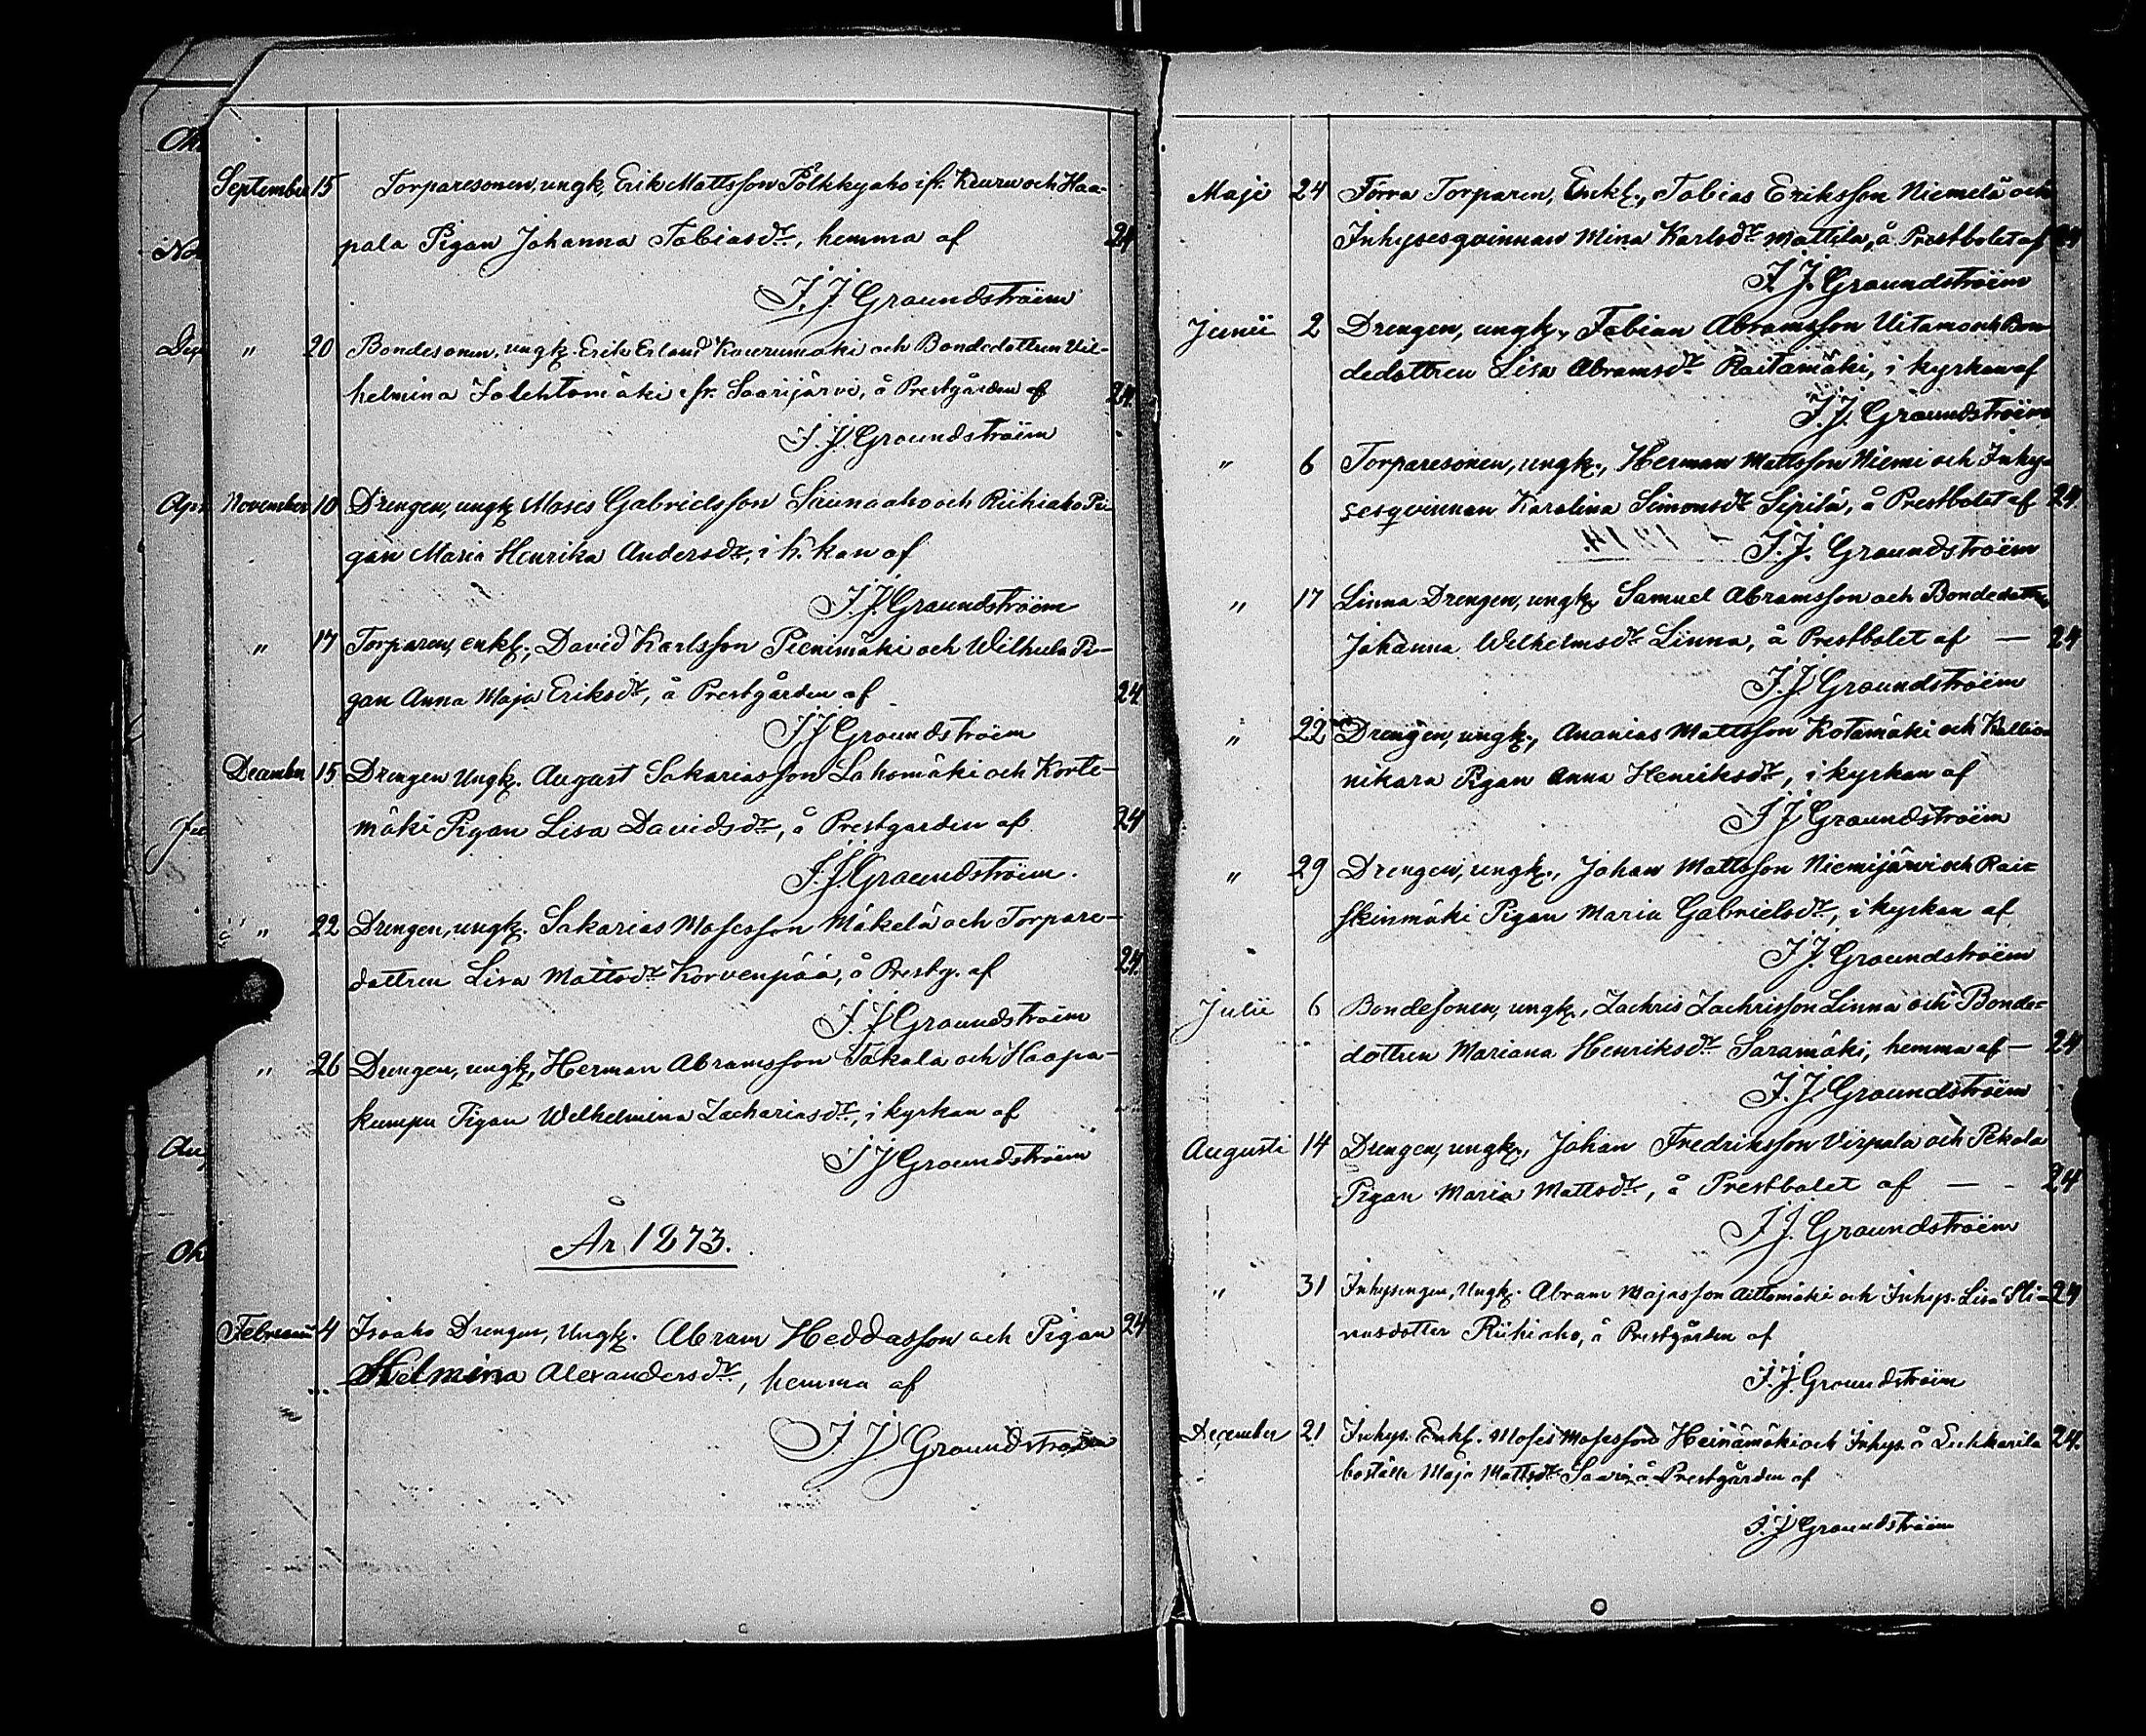 September 15 Torparesonen, ungk, Erik Mattsson Pölkkyaho ifr. Keuru och Haa-
pala Pigan Johanna Tobiasdr, hemma af 24
J. J. Graundströim
" 20 Bondesonen, ungk. Erik Erland Kauerumäki och Bondedottren Vil-
helmina Talehtomäki ifr. Saarijärvi, å Prestgården af 24.
J. J. Graundströim
November 10 Drengen, ungk Moses Gabrielsson Saunaaho och Riihiaho Pi-
gan Maria Henrika Andersdr, i k. kan af
J. J. Graundströöm
" 17 Torparen, enkl., David Karlsson Pienimäki och Wilhula Pi-
gan Anna Maja Eriksdr, å Prestgården af 24
J J Graundströim
December 15 Drengen Ungk. August Sakariasson Lahomäki och Korte-
mäki Pigan Lisa Davidsdr, å Prestgarden af 24
J. J. Graundströim.
" 22 Drengen, ungk. Sakarias Mosesson Mäkelä och Torpare-
dottren Lisa Mattsdr Korvenpää, å Prestg. af 24.
J. J Graundströim
" 26 Drengen, ungk, Herman Abramsson Takala och Haapa-
kumpu Pigan Welhelmina Zachariasdr, i kyrkan af
J J Graundströim
År 1873.
Februarii 4 Isoaho Drengen, Ungk. Abram Heddasson och Pigan 24
Helmina Alexandersdr, hemma af
J. J. Graundströim
Maji 24 Förra Torparen, Enkl., Tobias Eriksson Niemelä och
Inhysesqvinnan Mina Karlsdr Mattila, å Prestbolet af 24
J. J. Graundströim
Junii 2 Drengen, ungk., Fabian Abramsson Uitamo och Bon-
dedottren Lisa Abramsdr Raitamäki, i kyrkan af
J. J. Graundströim
" 6 Torparesonen, ungk., Herman Mattsson Niemi och Inhy-
sesqvinnan Karolina Simonsdr Sipilä, å Prestbolet af 24.
J. J. Graundströim
" 17 Linna Drengen, ungk, Samuel Abramsson och Bondedottren
Johanna Welhelmsdr Linna, å Prestbolet af — 24
J. J Graundströim
" 22 Drengen, ungk., Ananias Mattsson Kotamäki och Kallio-
nikara Pigan Anna Henriksdr, i kyrkan af
J J Graundströim
" 29 Drengen, ungk., Johan Mattsson Niemijärvi och Rai-
skinmäki Pigan Maria Gabrielsdr, i kyrkan af
J J. Graundströim
Julii 6 Bondesonen, ungk., Zachris Zachrisson Linna och Bonde-
dottren Mariana Henriksdr Saramäki, hemma af — 24
J. J. Graundströim
Augusti 14 Drengen, ungk., Johan Fredriksson Virpala och Pekola
Pigan Maria Mattsdr, å Prestbolet af — - 24
J J. Graundströim
" 31 Inhysingen, Ungk. Abram Majasson Aittomäki och Inhys. Lisa Sti- 24
nasdotter Riihiaho, å Prestgården af
J. J. Graundströim
December 21 Inhys. Enkl. Moses Mosesson Heinämäki och Inhys. å Liehkarila 24.
boställe Maja Mattsdr Saari, å Prestgården af
J. J Graundströim